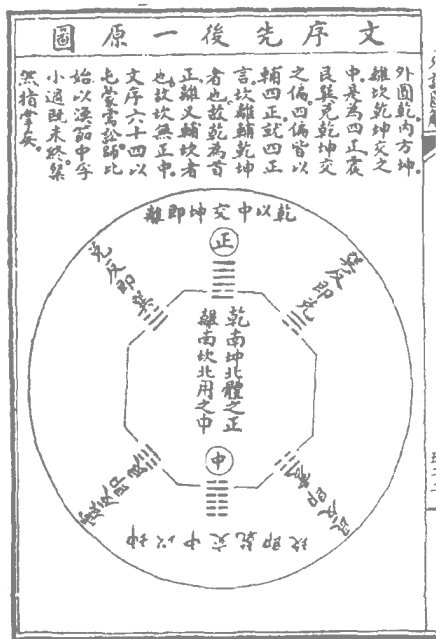 文序先後一原圖
外圓乾。內方坤。
離坎乾坤交之
中。是為四正。震
艮巽兌乾坤交
之偏。四偏皆以
輔四正。就四正
言。坎離輔乾坤
者也。故乾為首
正。離又輔坎者
也。故坎無正中。
文序六十四。以
屯蒙需訟師比
始。以渙節中孚
小過既未終。粲
然指掌矣。
乾以中交坤即離
正
巽反即兌
兌反即巽
乾南坤北體之正
離南坎北用之中
中
艮反即震
震反即艮
坤以中交乾即坎